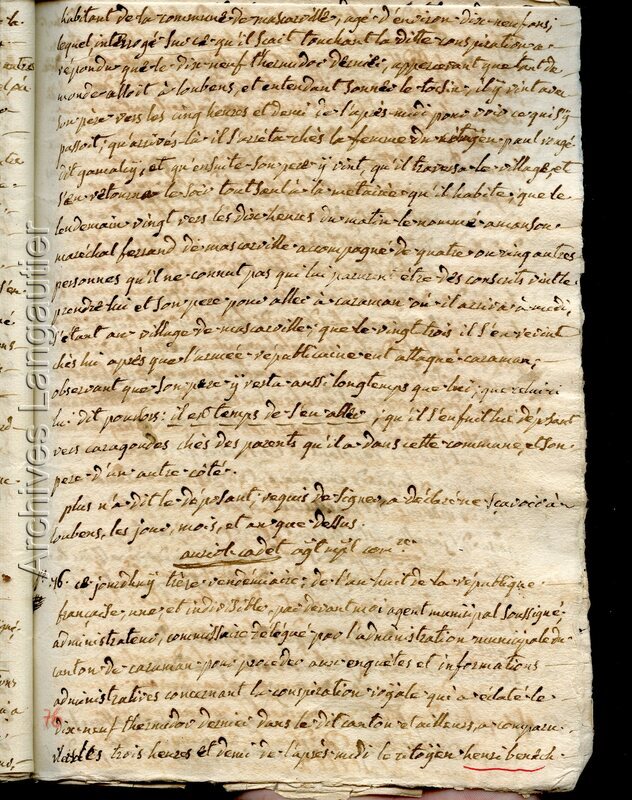 habitant de la commune de mascarville, agé d'environ dix neuf ans,
lequel interrogé sur ce qu'il scait touchant la ditte conspiration a
répondu que le dix neuf thermidor dernier, appercevant que tant de
monde alloit à loubens, et entendant sonner le tocsin, il y vint avec
son pere vers les cinq heures et demi de l'après midi pour voir ce qui s'y
passoit; qu'arrivés là il s'arreta chés la femme du citoyen paul rougé
dit gamaly, et qu'ensuite son pere y vint, qu'il traversa le village, et
s'en retourna le soir tout seul à la metairie qu'il habite; que le
lendemain vingt vers les dix heures du matin le nommé amanson
maréchal ferrand de mascarville accompagné de quatre ou cinq autres
personnes qu'il ne connut pas qui lui parurent être des conscrits vint le
prendre lui et son pere pour aller à caraman où il arriva à midi,
s'etant au village de mascarville; que le vingt trois il s'en revint
chés lui après que l'armée républicaine eut attaqué caraman;
observant que son pere y resta aussi longtemps que lui; que celui ci
lui dit pour lors: il est temps de s'en aller; qu'il s'enfuit lui déposant
vers caragoudes chés des parents qu'il a dans cette commune, et son
pere d'un autre côté.
plus n'a dit le déposant, requis de signer, a déclaré ne scavoir à
loubens, les jour, mois, et an que dessus.
auriol cadet agt mpl comre
76. ce jourdhuy tière vendémiaire, de l'an huit de la république
française une et indivisible, par devant moi agent municipal soussigné
administrateur, commissaire délégué par l'administration municipale du
canton de caraman pour proceder aux enquêtes et informations
administratives concernant la conspiration royale qui a eclaté le
76
dix neuf thermidor dernier dans le dit canton et ailleurs, a comparu
les trois heures et demi de l'après midi le citoyen henri benech
Archives Langautier